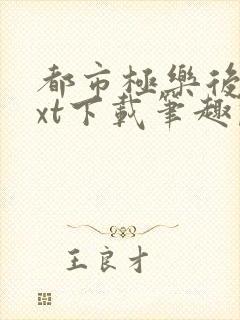 都市極樂後
xt下載筆趣
王良才